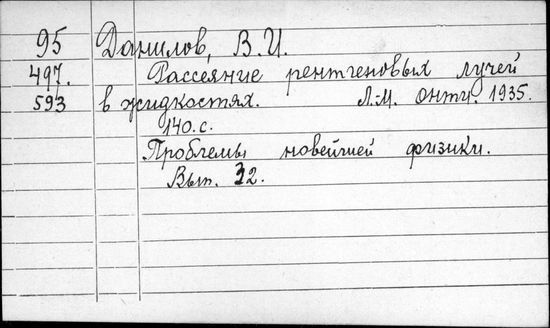 95 Данилов, В.И.
497. Рассеяние рентгеновых лучей
593 в жидкостях. Л.-М. ОНТИ. 1935.
140.с.
Проблемы новейшей физики.
Вып. 32.